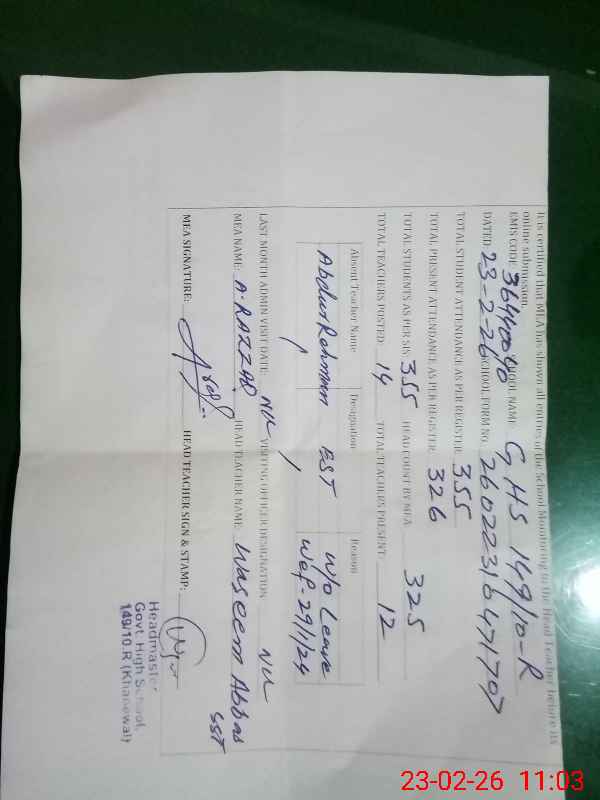 It is certified that MEA has shown all entries of the School Monitoring to the Head Teacher before its
online submission.
EMIS CODE: SCHOOL NAME: GHS 149/10-R
DATED: 23-2-26 SCHOOL FORM NO.
TOTAL STUDENT ATTENDANCE AS PER REGISTER: 355
TOTAL PRESENT ATTENDANCE AS PER REGISTER: 326
TOTAL STUDENTS AS PER SIS: 355 HEAD COUNT BY MEA: 325
TOTAL TEACHERS POSTED: 14 TOTAL TEACHERS PRESENT: 12
Absent Teacher Name Designation Reason
Abdur Rehman EST W/o Leave
wef-29/1/24
LAST MONTH ADMIN VISIT DATE: Nil VISITING OFFICER DESIGNATION Nil
MEA NAME: A. RAZZAQ HEAD TEACHER NAME: Waseem Abbas
SST
MEA SIGNATURE: HEAD TEACHER SIGN & STAMP:
Headmaster
Govt. High School,
149/10.R (Khanewal)
23-02-26 11:03